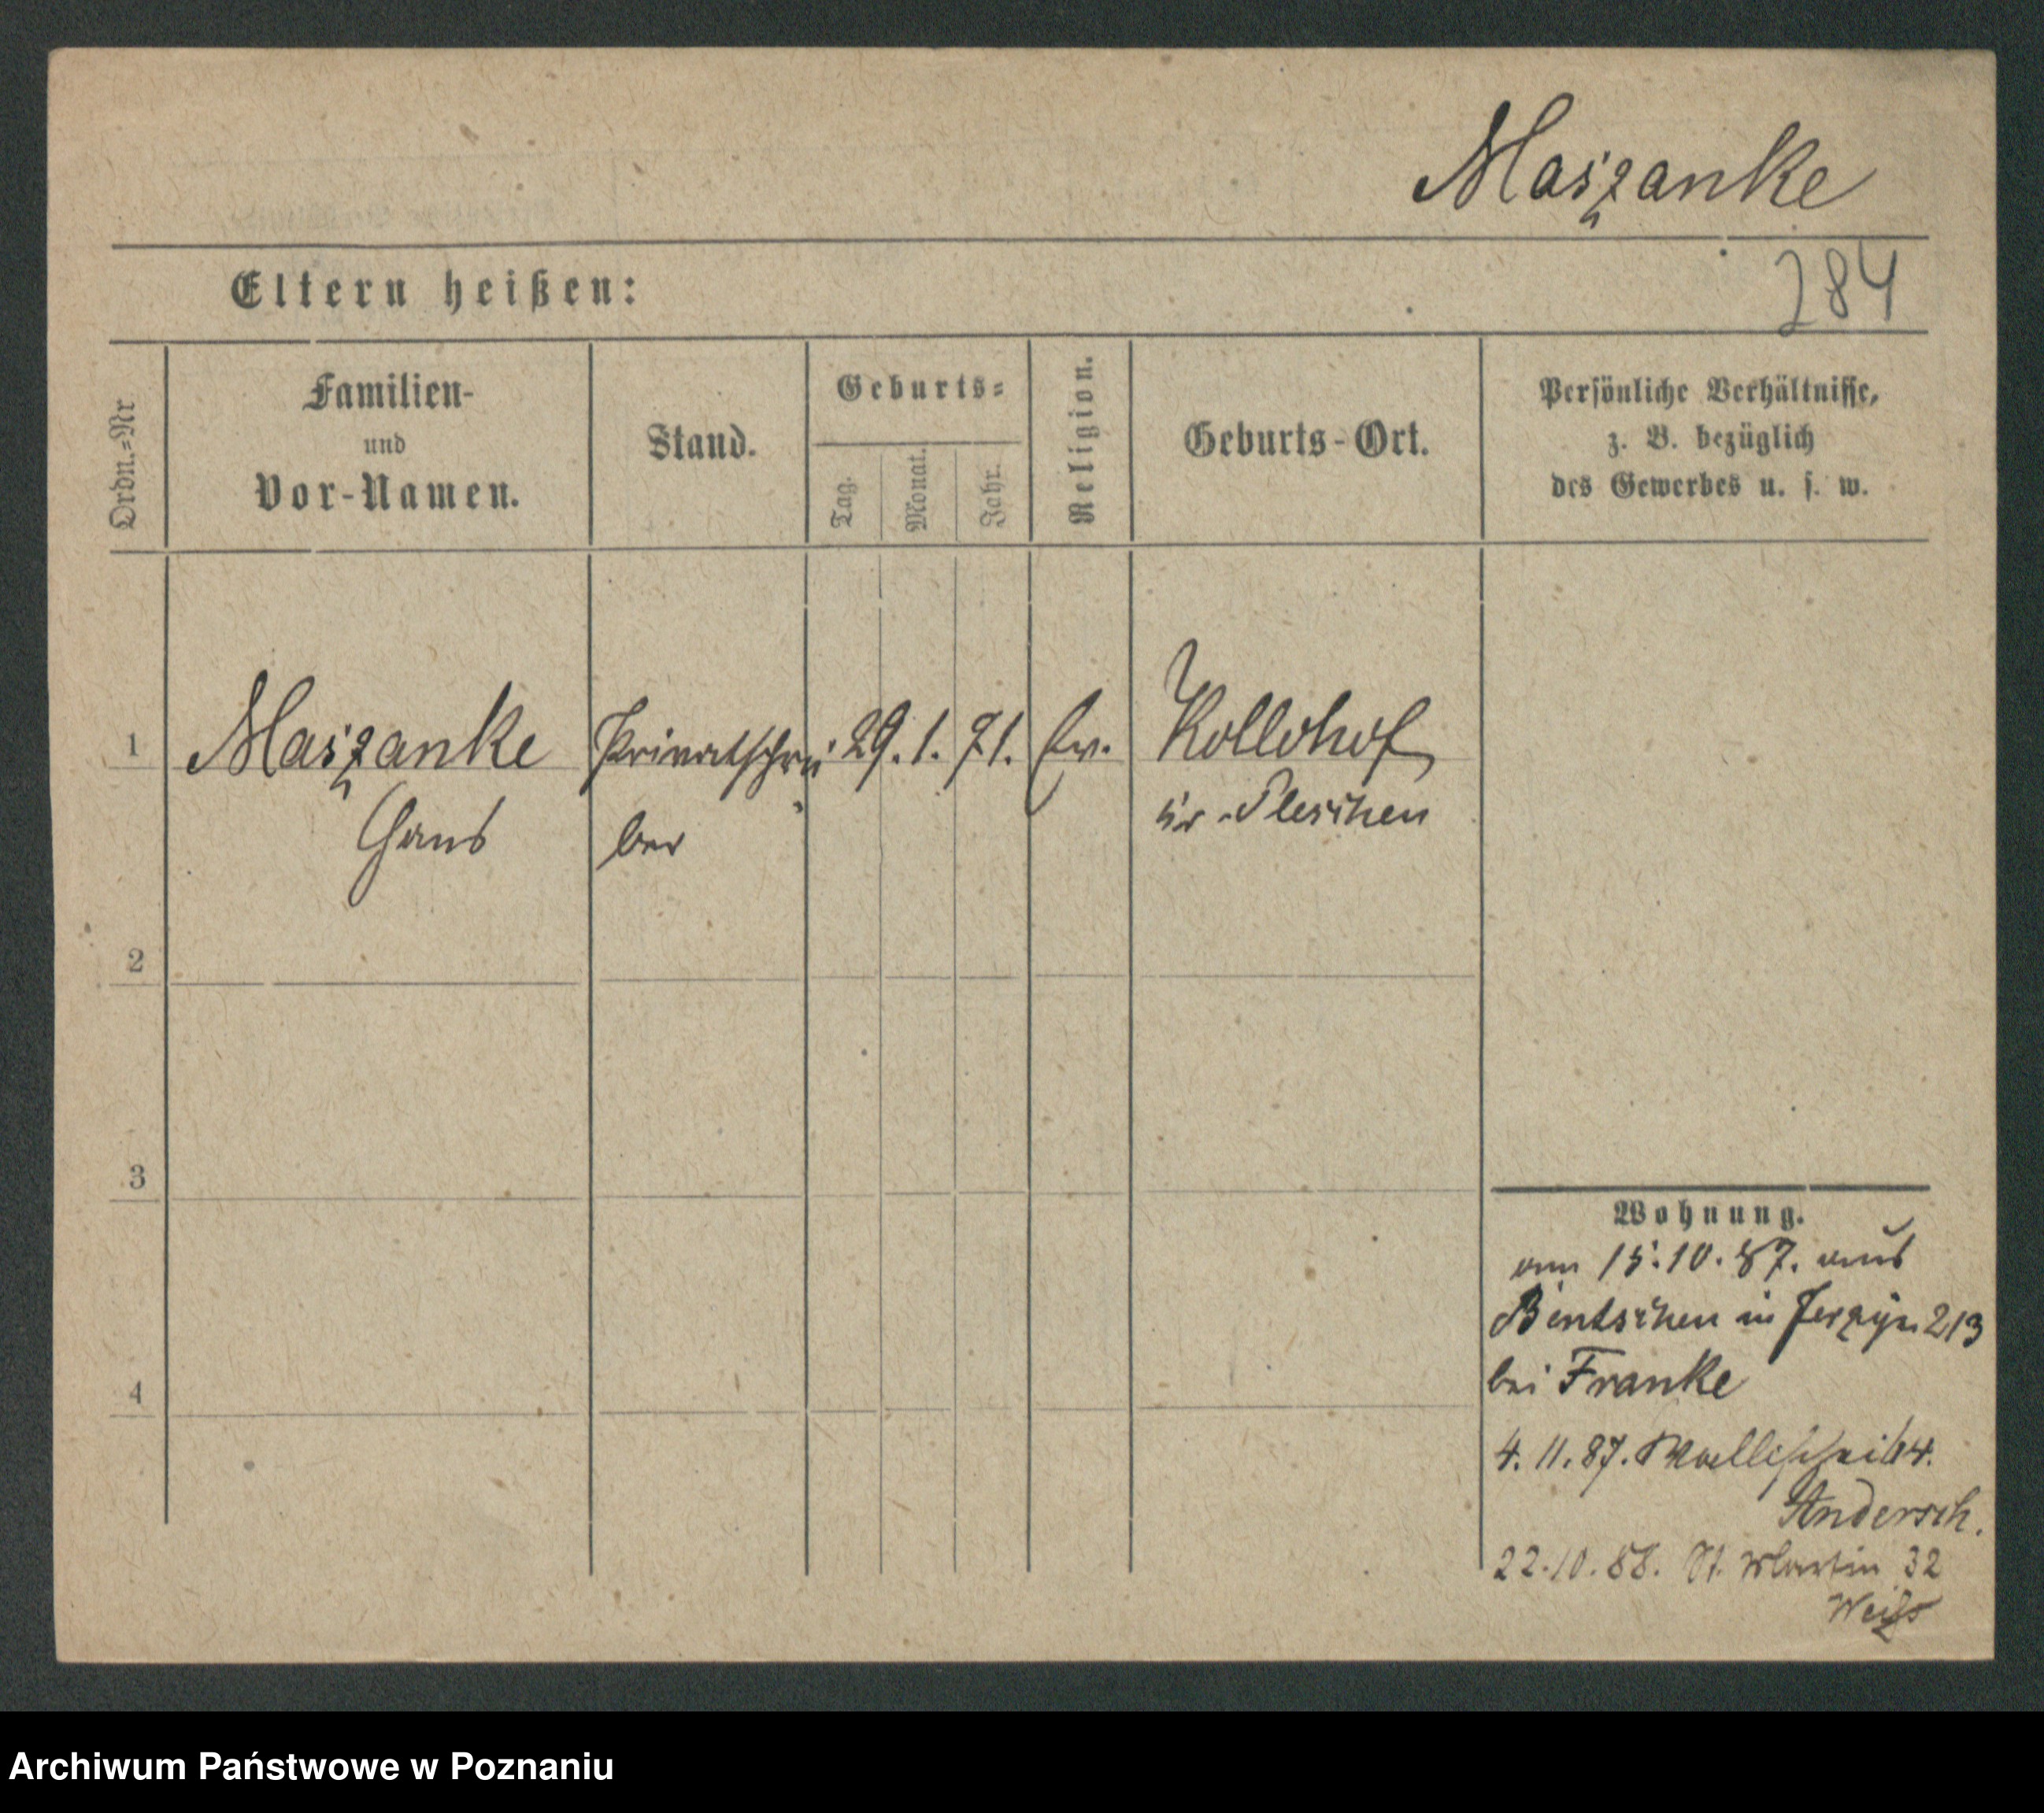 Maszanke
Eltern heißen:
284
Ordn.=Nr
Familien-
und
Vor-Namen.
Stand.
Geburts=
Tag.
Monat.
Jahr.
Religion.
Geburts-Ort.
Persönliche Verhältnisse,
z. B. bezüglich
des Gewerbes u. s. w.
1 Maszanke Privatschrei 29. 1. 71. Ev. Kollohof
Hans ber Kr. Pleschen
2
3
4
Wohnung.
am 15.10.87. aus
Bentschen in Jerzyn 213
bei Franke
4. 11. 87. Wallischei 64.
Andersch.
22.10.88. St. Martin 32
Weiss
Archiwum Państwowe w Poznaniu